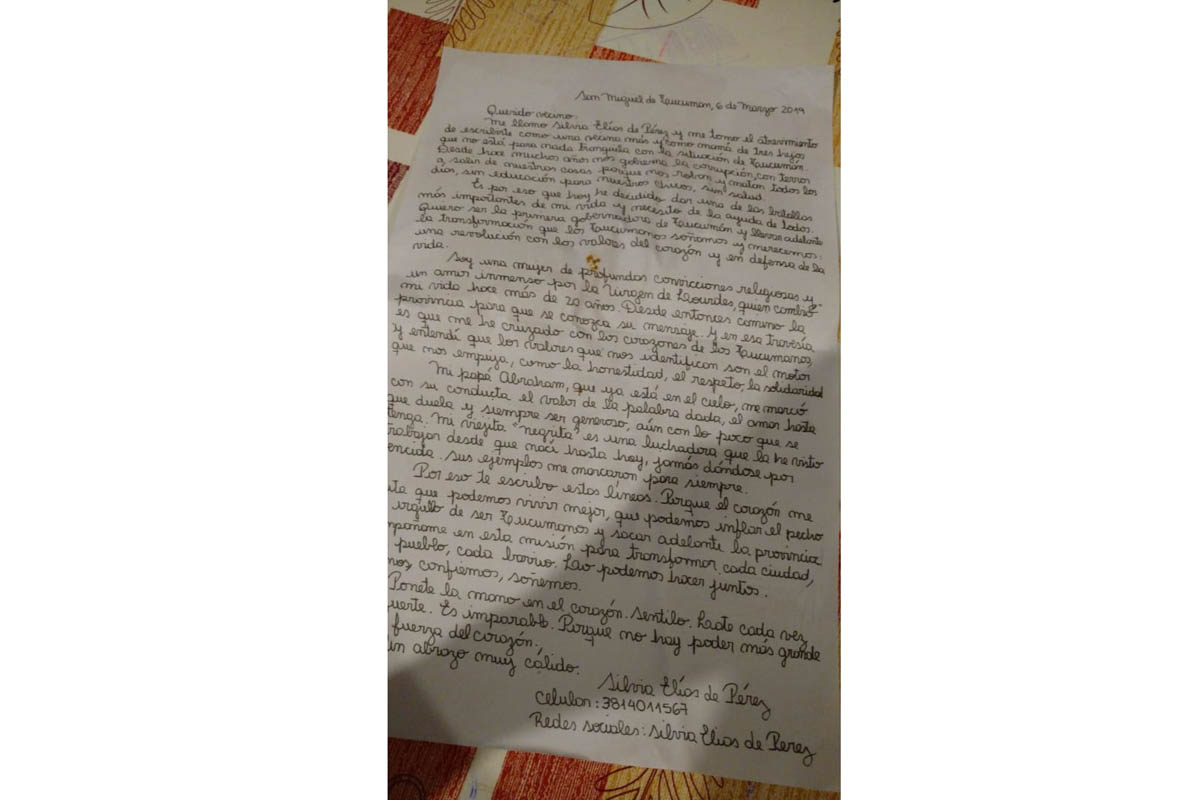 San Miguel de Tucumán, 6 de Marzo 2019
Querido vecino:
Me llamo Silvia Elías de Pérez y me tomo el atrevimiento
de escribirte como una vecina más y como mamá de tres hijos
que no está para nada tranquila con la situación de Tucumán.
Desde hace muchos años nos gobierna la corrupción, con terror
a salir de nuestras casas porque nos roban y matan todos los
días, sin educación para nuestros chicos, sin salud.
Es por eso que hoy he decidido dar una de las batallas
más importantes de mi vida y necesito de la ayuda de todos.
Quiero ser la primera gobernadora de Tucumán y llevar adelante
la transformación que los Tucumanos soñamos y merecemos:
una revolución con los valores del corazón y en defensa de la
vida.
Soy una mujer de profundas convicciones religiosas y
un amor inmenso por la Virgen de Lourdes, quien cambió
mi vida hace más de 20 años. Desde entonces camino la
provincia para que se conozca su mensaje. Y en esa travesía
es que me he cruzado con los corazones de los Tucumanos,
y entendí que los valores que nos identifican son el motor
que nos empuja, como la honestidad, el respeto, la solidaridad
Mi papá Abraham, que ya está en el cielo, me marcó
con su conducta el valor de la palabra dada, el amar hasta
que duela y siempre ser generoso, aún con lo poco que se
tenga. Mi viejita "negrita" es una luchadora que la he visto
trabajar desde que nací hasta hoy, jamás dándose por
encida. Sus ejemplos me marcaron para siempre.
Por eso te escribo estas líneas. Porque el corazón me
ita que podemos vivir mejor, que podemos inflar el pecho
orgullo de ser Tucumanos y sacar adelante la provincia
mpañame en esta misión para transformar cada ciudad,
pueblo, cada barrio. Lao podemos hacer juntos.
mos, confiemos, soñemos.
Ponete la mano en el corazón. Sentilo. Late cada vez
uerte. Es imparable. Porque no hay poder más grande
fuerza del corazón.
Un abrazo muy cálido.
Silvia Elías de Pérez
Celular: 3814011567
Redes sociales: Silvia Elias de Perez